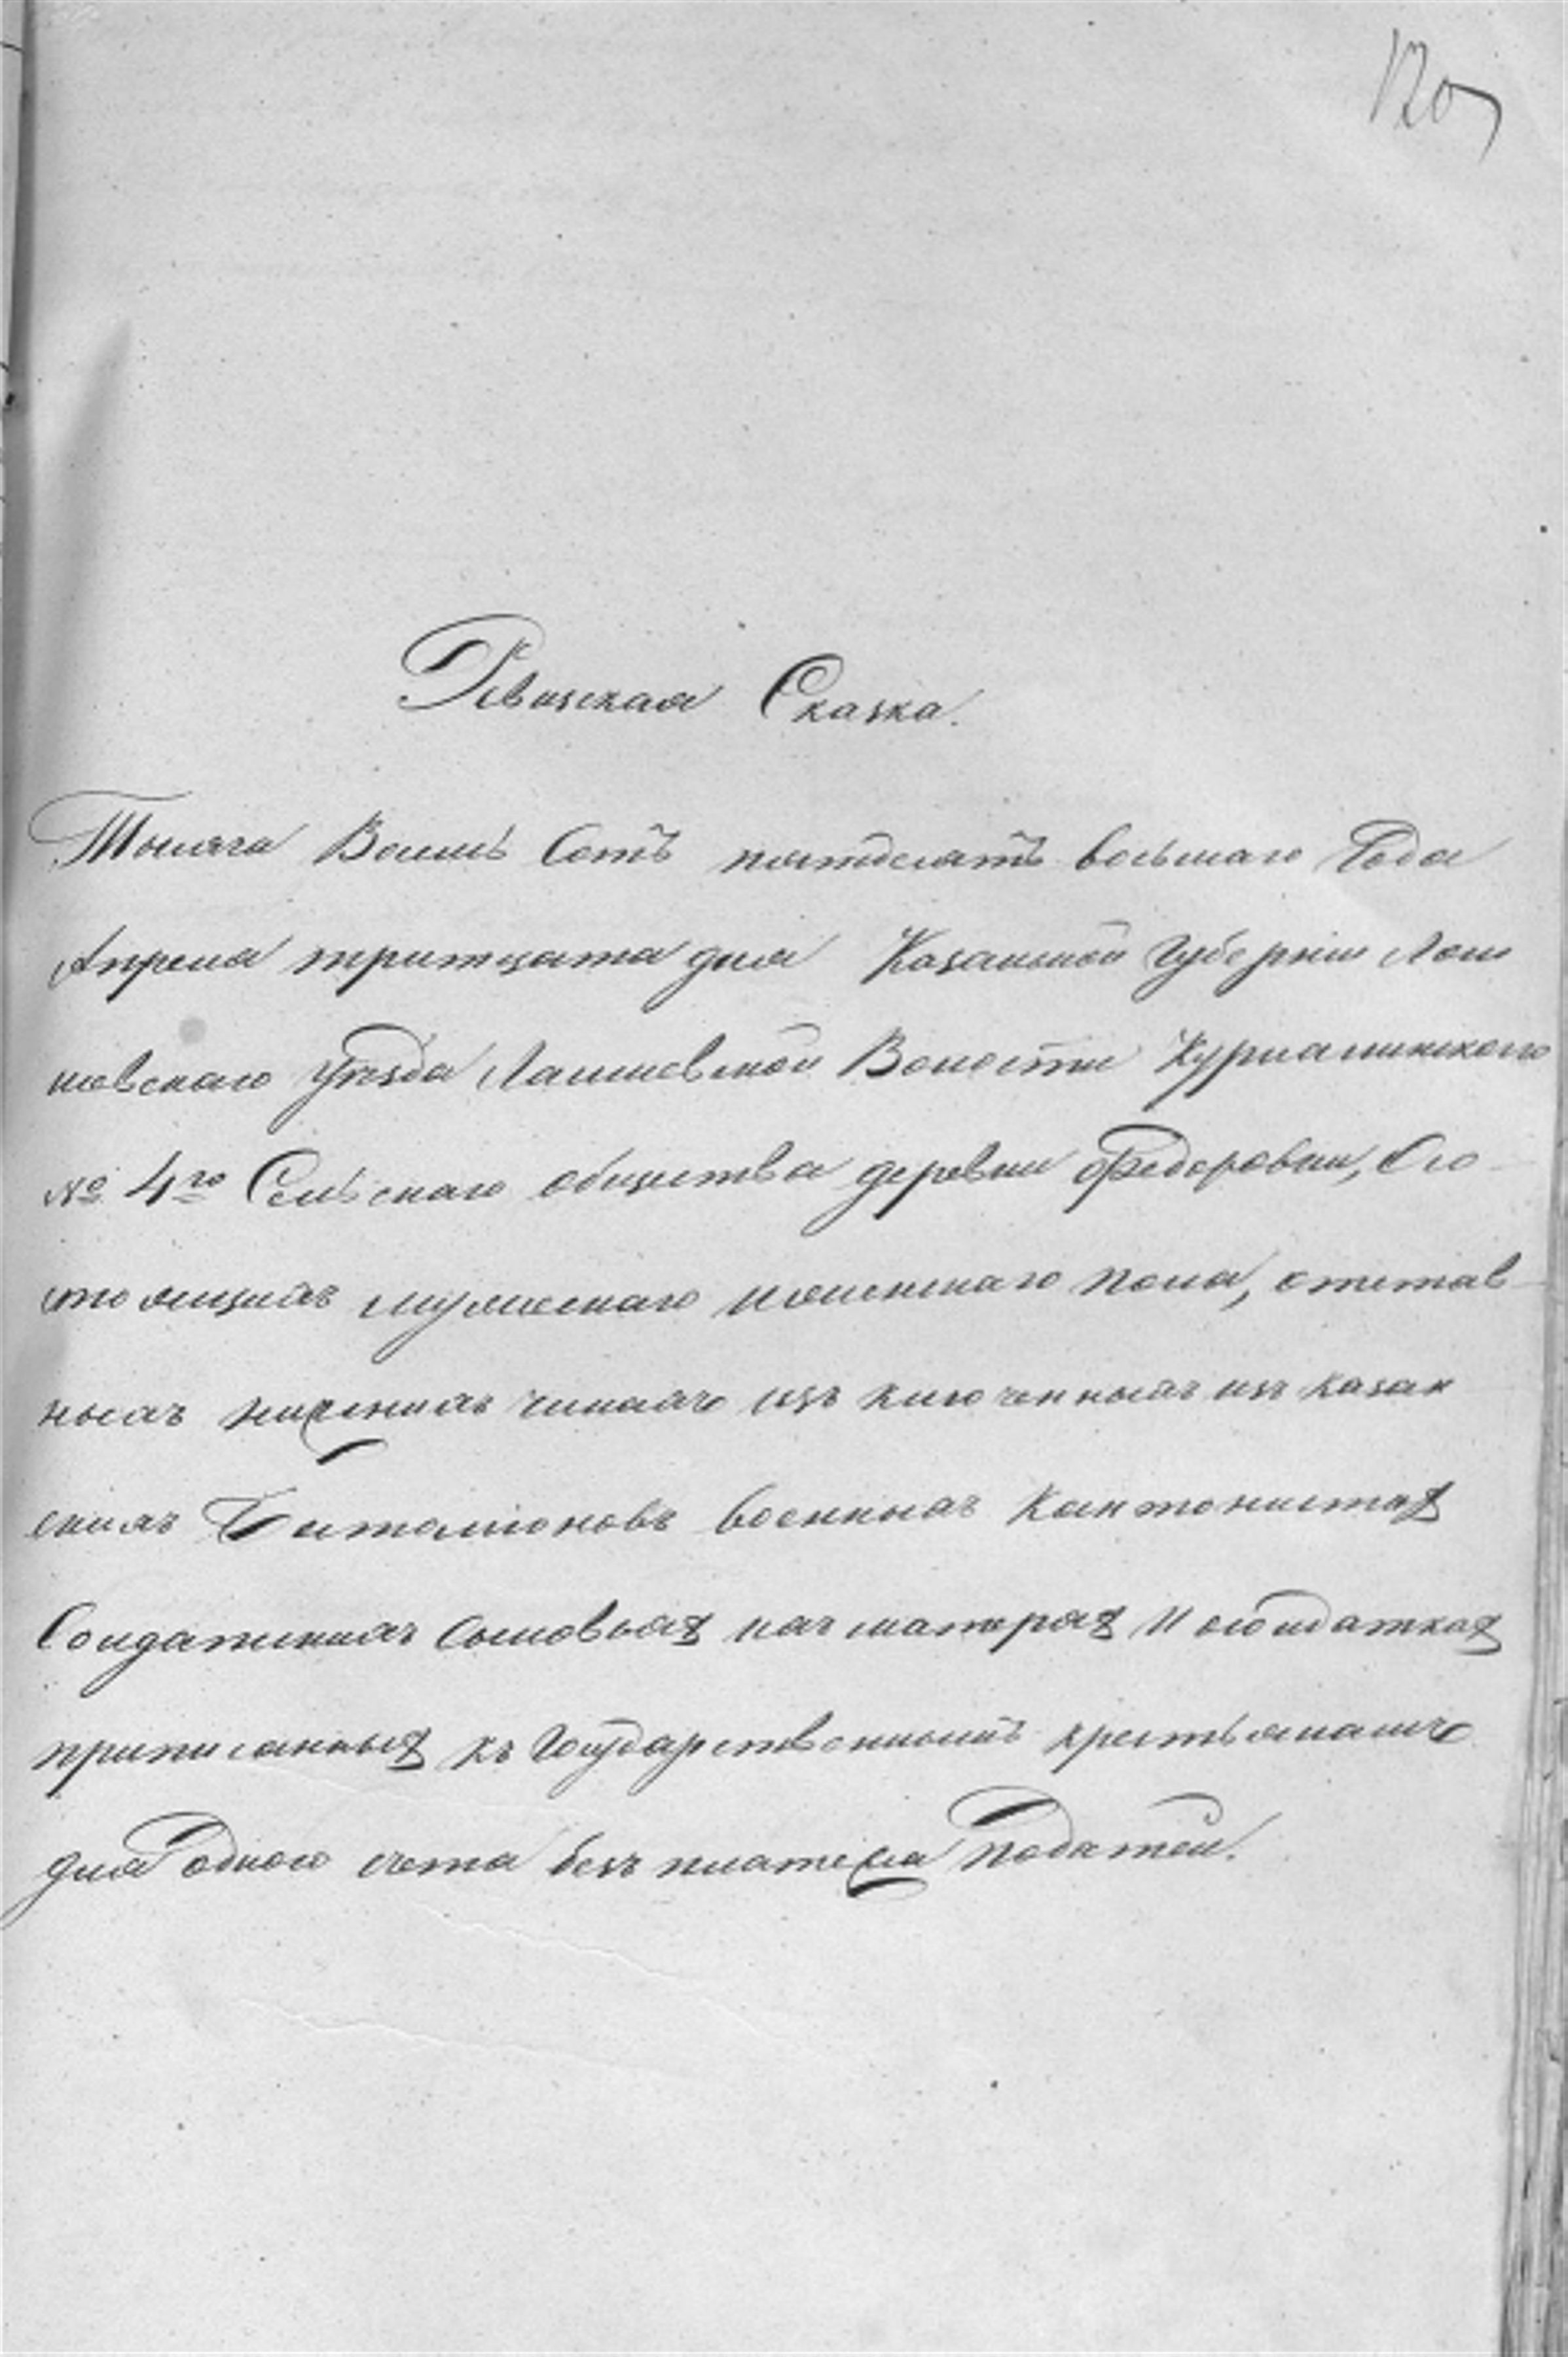 120
Ревизская Сказка.
Тысяча Восемь Сотъ пятьдесятъ восьмаго Года
Апреля тритцата дня Казанской Губернiи Лаи
шевскаго уѣзда Лаишевской Волости Курналинского
№ 4го Сельскаго общества деревни Федоровки, Со
стоящихъ мужескаго и женскаго пола, отстав
ныхъ нижнихъ чинахъ изъ ключенныхъ изъ казан
скихъ Баталiоновъ военныхъ Кантонистах
Солдатскихъ сыновьях ихъ матерях и солдатках
приписанных къ Государственнымъ крестьянамъ
для одного счета безъ платежа Податей.